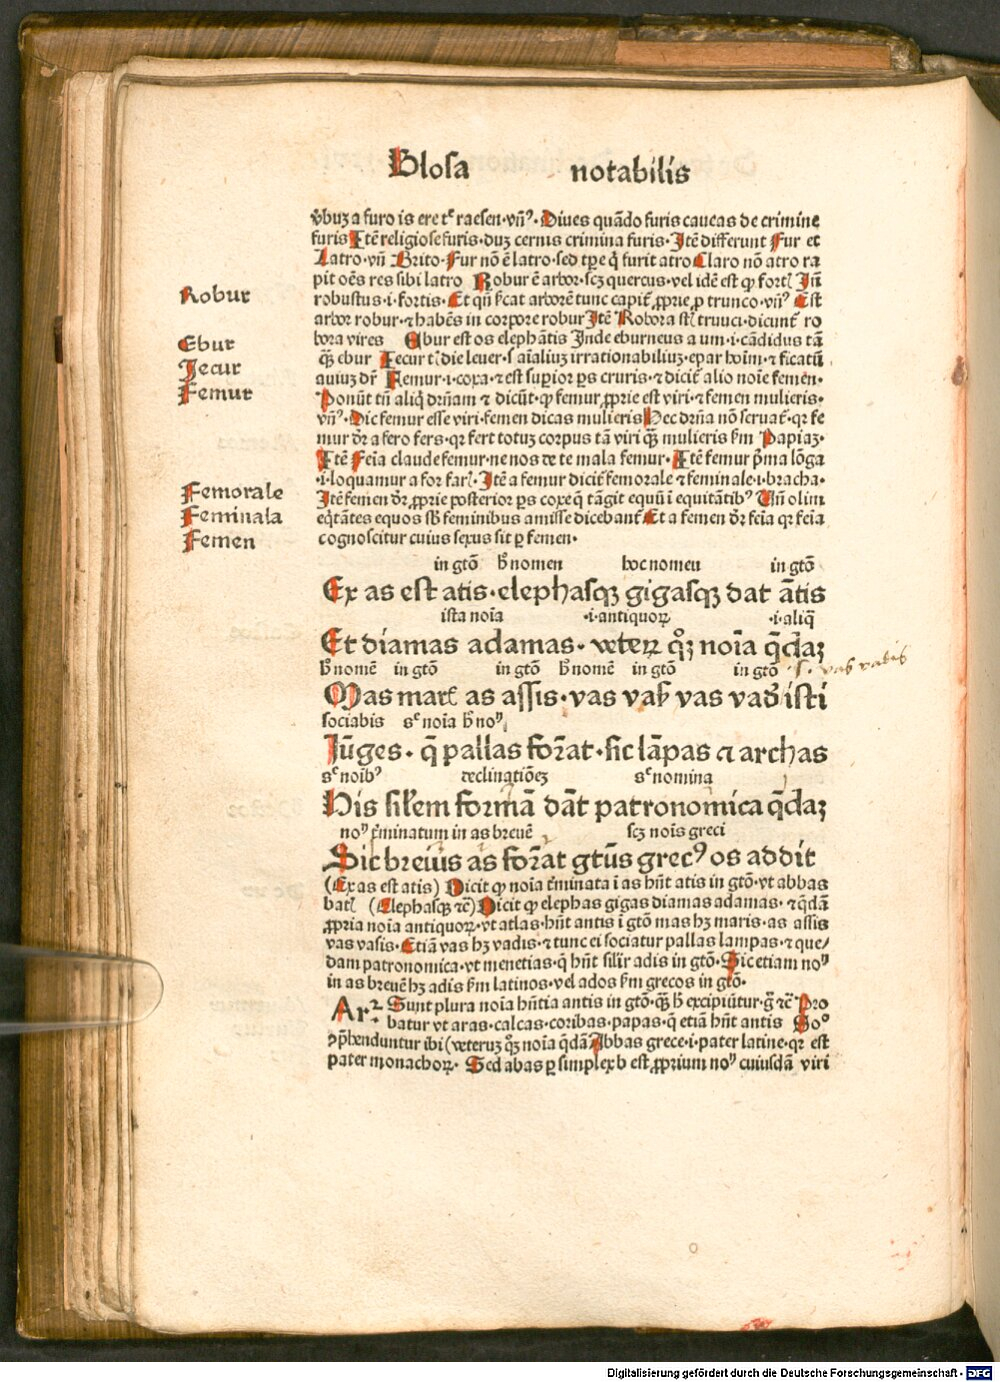 Glosa notabilis
v̄buȝ a furo is ere tͤ raesen·vn̄ꝰ·Diues quãdo furis caueas de crimine
furis Itẽ religiose furis·duȝ cernis crimina furis·Itẽ differunt Fur et
Latro·vn̄ Brito·Fur nõ ẽ latro·sed tꝑe q̇ furit atro Claro nõ atro ra
pit oẽs res sibi latro Robur ẽ arbor·scȝ quercus·vel idẽ est ꝙ fortꝭ Jn̄
Robur
robustus·i·fortis·Et qn̄ ſcat arborẽ tunc capit̃ ꝓprie ꝓ trunco·vn̄ꝰ Est
arbor robur·⁊ habẽs in corpore robur Itẽ Robora st̃ trunci·dicunt̃ ro
bora vires Ebur est os elephãtis Inde eburneus a um·i·cãdidus tã
Ebur
q̃ȝ ebur Iecur tꝭ die leuer·ſ aĩaliuȝ irrationabiliuȝ·epar hoĩm·⁊ ficatũ
Jecur
auiuȝ dr̃ Femur·i·coxa·⁊ est supĩor ꝑs cruris·⁊ dicit̃ alio noĩe femen·
Femur
Ponũt tñ aliq̇ drñam ⁊ dicũt·ꝙ femur ꝓprie est viri·⁊ femen mulieris·
vn̄ꝰ·Dic femur esse viri·femen dicas mulieris Hec drña nõ seruat̃·qꝛ fe
mur dr̃ a fero fers·qꝛ fert totuȝ corpus tã viri q̃ȝ mulieris ẜm Papiaȝ·
Itẽ Feĩa claude femur·ne nos de te mala femur·Itẽ femur pͥma lõga
·i·loquamur a for farꝭ·Itẽ a femur dicit̃ femorale ⁊ feminale·i·bracha·
Femorale
Itẽ femen dr̃ ꝓprie posterior ꝑs coxe q̇ tãgit equũ ĩ equitãtibꝰ Un̄ olim
Feminala
eq̇tãtes equos sb̃ feminibus amisse dicebant̃ Et a femen dr̃ feĩa qꝛ feĩa
Femen
cognoscitur cuius sexus sit ꝑ femen·
in gtõ h̃ nomen hoc nomen in gtõ
Ex as est atis·elephasqȝ gigasqȝ dat ãtis
ista noĩa ·i·antiquoꝝ ·i·aliq̃
Et diamas adamas·veteꝝ qͦȝ noĩa q̃daȝ
h̃ nomẽ in gtõ in gtõ h̃ nomẽ in gtõ in gtõ ·s· vas vatis
Mas marꝭ as assis·vas vaẜ vas vad̃ isti
sociabis sͨ noĩa h̃ noꝰ
Jũges·q̃ pallas foꝛat·sic lãpas ⁊ archas
sͨ noĩbꝰ declinatiões sͨ nomina
His sil̃em formã dãt patronomica q̃daȝ
noꝰ t̃minatum in as breuẽ scȝ noĩs greci
Sic breuis as foꝛat gtũs grecꝰ os addit
(Ex as est atis) Dicit ꝙ noĩa t̃minata ĩ as hñt atis in gtõ·vt abbas
batꝭ (Elephasqȝ ⁊c̃) Dicit ꝙ elephas gigas diamas adamas·⁊ q̃dã
ꝓpria noĩa antiquoꝝ·vt atlas·hñt antis ĩ gtõ mas hȝ maris·as assis
vas vasis·Etiã vas hȝ vadis·⁊ tunc ei sociatur pallas lampas·⁊ que⸗
dam patronomica·vt menetias·q̃ hñt silĩr adis in gtõ·Sic etiam noꝰ
in as breuẽ hȝ adis ẜm latinos·vel ados ẜm grecos in gtõ·
Ar² Sunt plura noĩa hñtia antis in gtõ·q̃ȝ h̃ excipiũtur·g̃ ⁊c̃ Pro
batur vt aras·calcas·coribas·papas·q̃ etiã hñt antis Soᵒ
ↄp̃henduntur ibi (veteruȝ qͦȝ noĩa q̃dã Abbas grece·i·pater latine·qꝛ est
pater monachoꝝ· Sed abas ꝑ simplex b est ꝓprium noꝰ cuiusdã viri
Digitalisierung gefördert durch die Deutsche Forschungsgemeinschaft - DFG